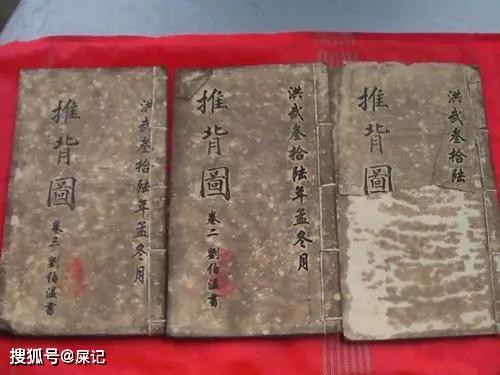 洪武叁拾陸
推背圖
洪武叁拾陸年孟冬月
推背圖
卷二 劉伯温書
洪武叁拾陸年孟冬月
推背圖
卷三 劉伯温書
搜狐号@屎记